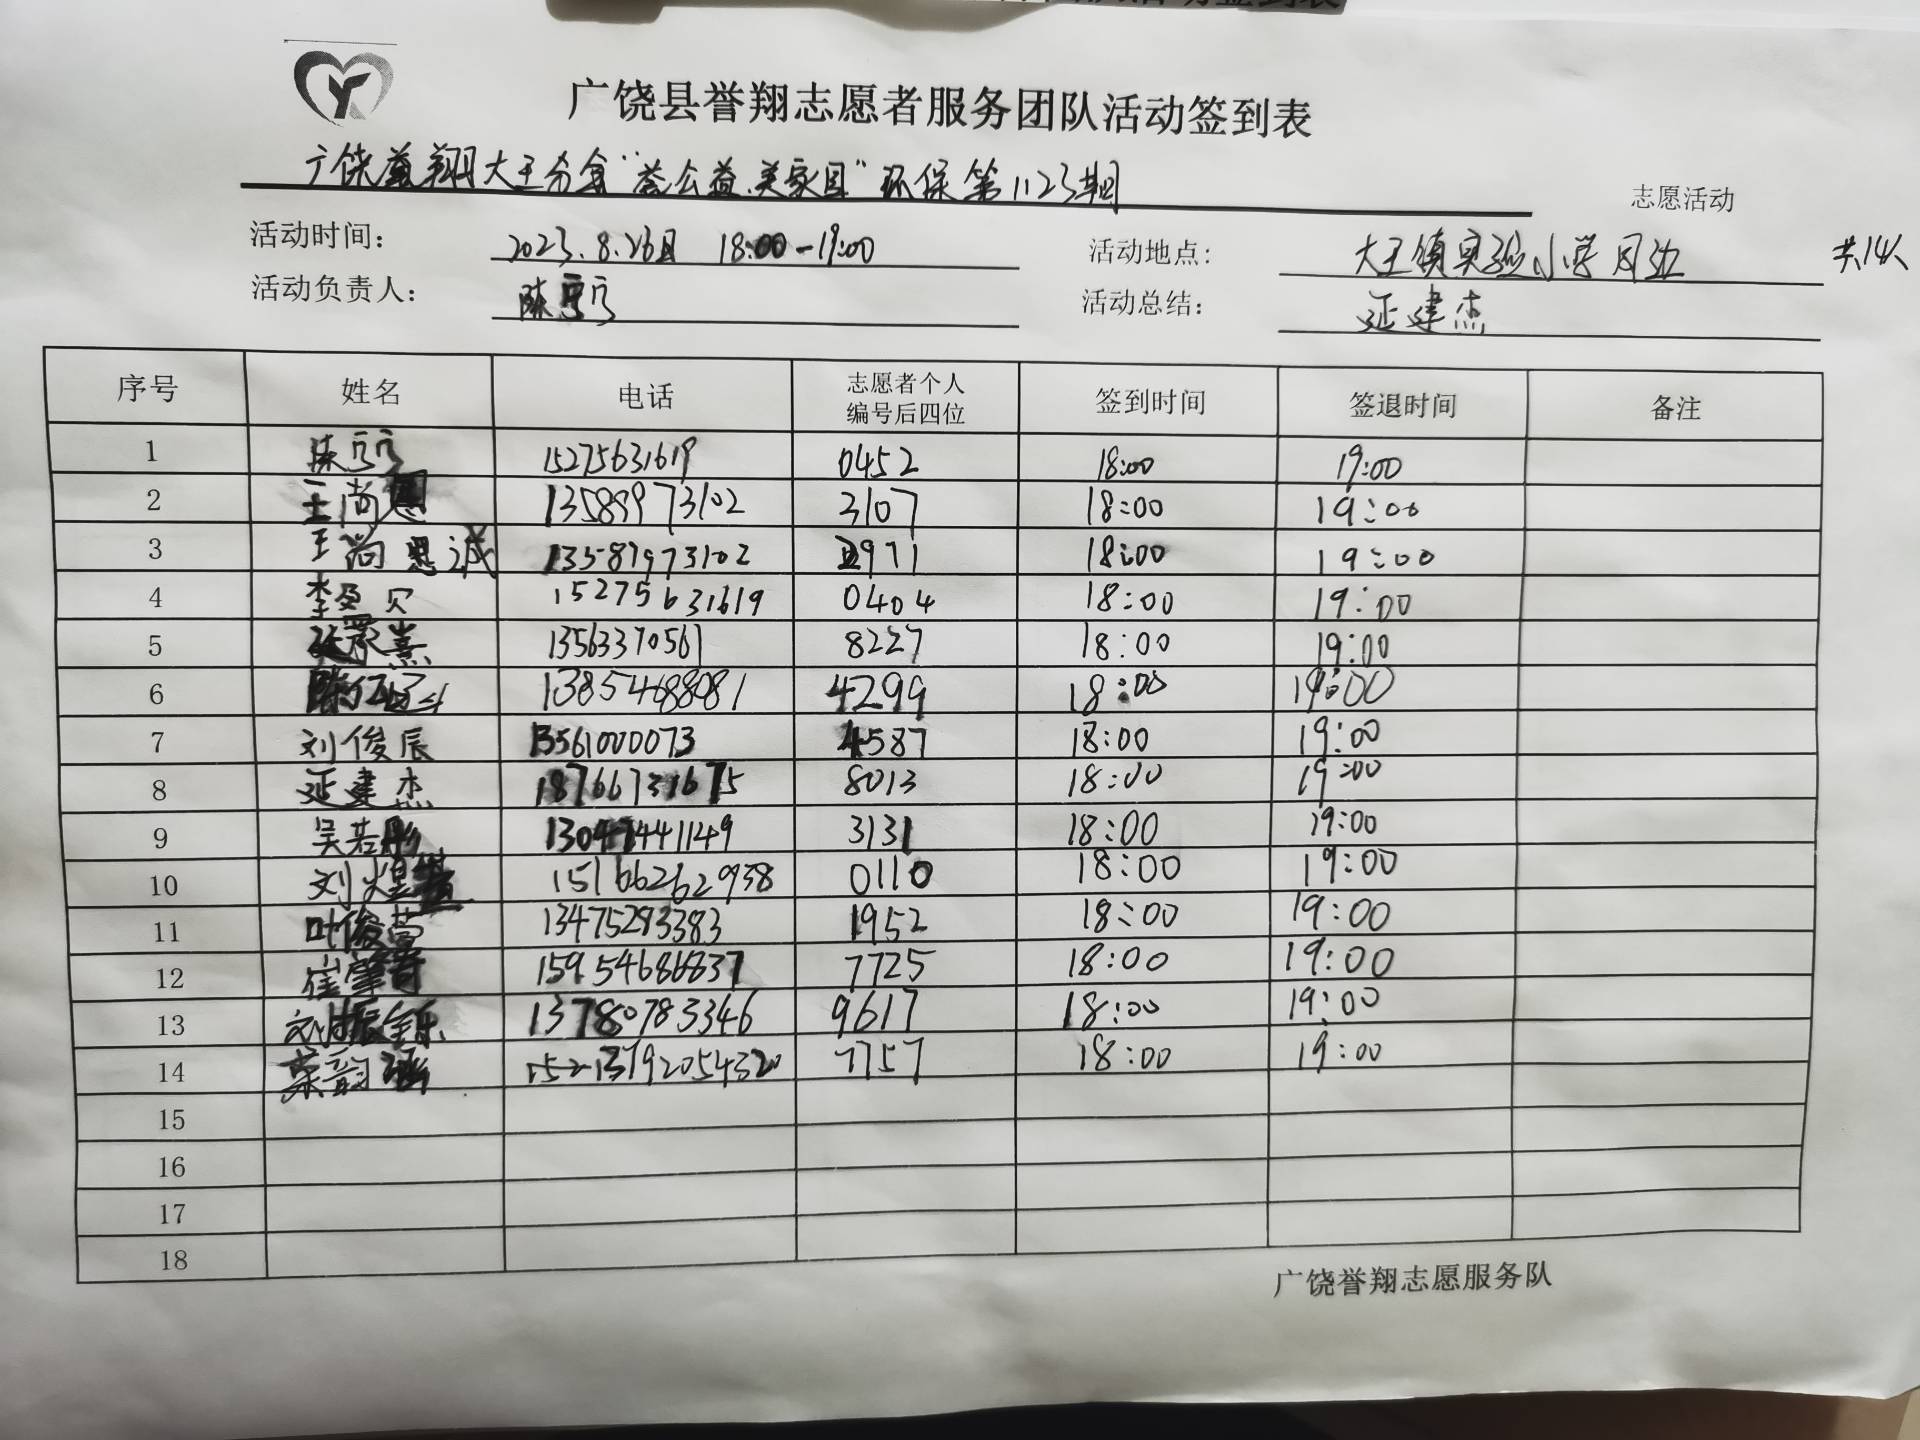 广饶县誉翔志愿者服务团队活动签到表
广饶誉翔大王分会“誉公益.美家园”环保第1123期 志愿活动
活动时间： 2023.8.26日 18:00-19:00 活动地点: 大王镇实验小学周边 共14人
活动负责人： 陈 活动总结： 延建杰
序号 姓名 电话 志愿者个人编号后四位 签到时间 签退时间 备注
1 陈 15275631619 0452 18:00 19:00
2 王尚恩 13589973102 3107 18:00 19:00
3 王尚思诚 13589973102 2971 18:00 19:00
4 李 贝 15275631619 0404 18:00 19:00
5 熹 13563370561 8227 18:00 19:00
6 陈 13854688081 4299 18:00 19:00
7 刘俊辰 13561000073 4587 18:00 19:00
8 延建杰 18766731675 8013 18:00 19:00
9 吴若彤 13047441149 3131 18:00 19:00
10 刘煜 15166262938 0110 18:00 19:00
11 叶俊 13475283383 1952 18:00 19:00
12 崔 15954686837 7725 18:00 19:00
13 刘振 13780783346 9617 18:00 19:00
14 荣韵涵 7757 18:00 19:00
15
16
17
18
广饶誉翔志愿服务队